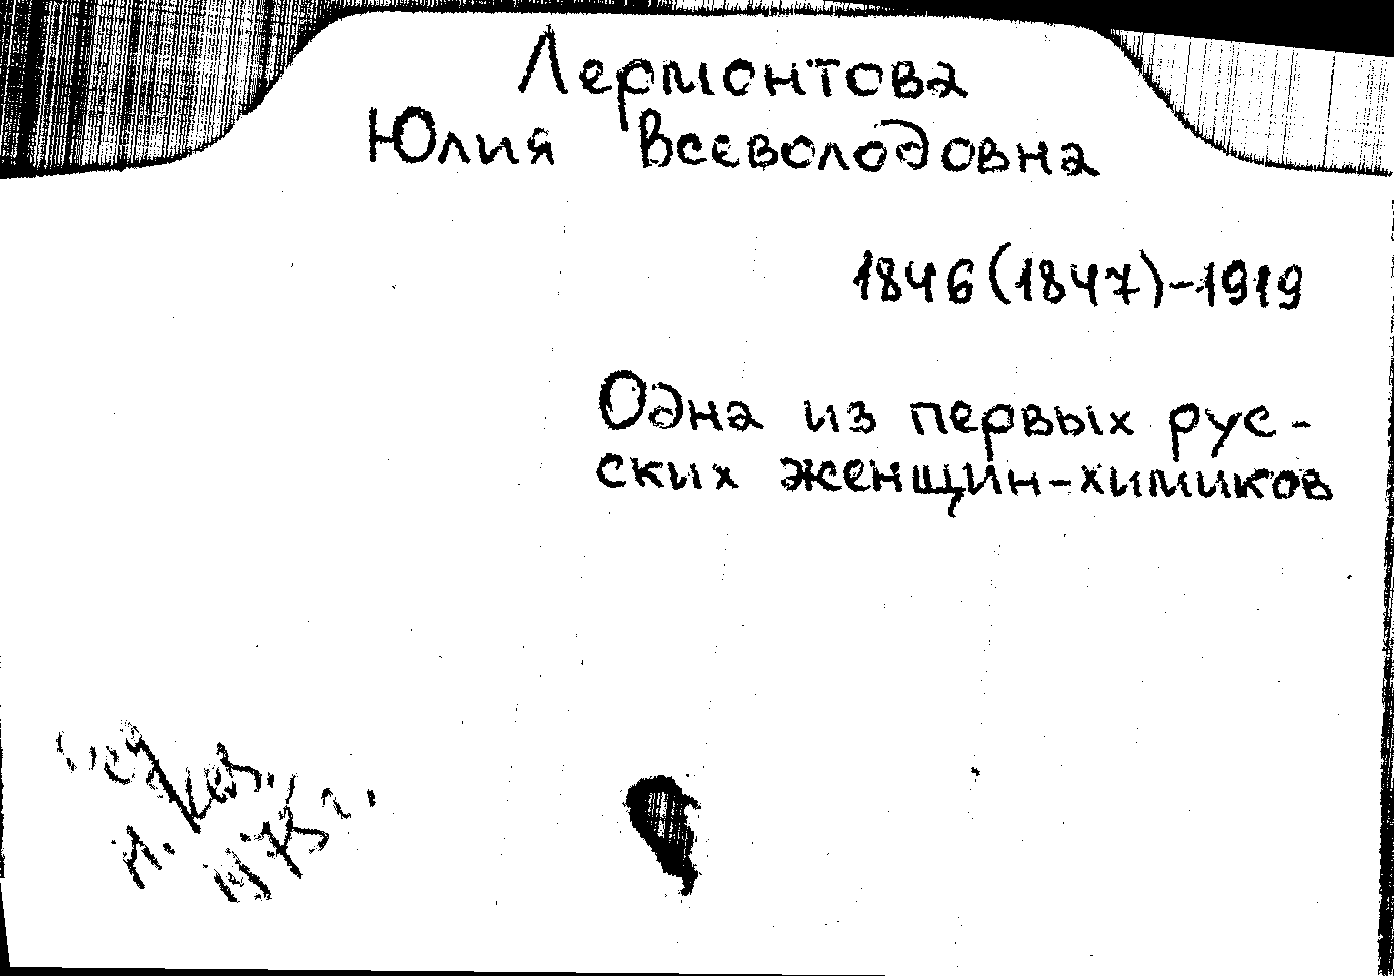 Лермонтова
Юлия Всеволодовна
1846 (1847)-1919
Одна из первых рус-
ских женщин-химиков
1973 г.